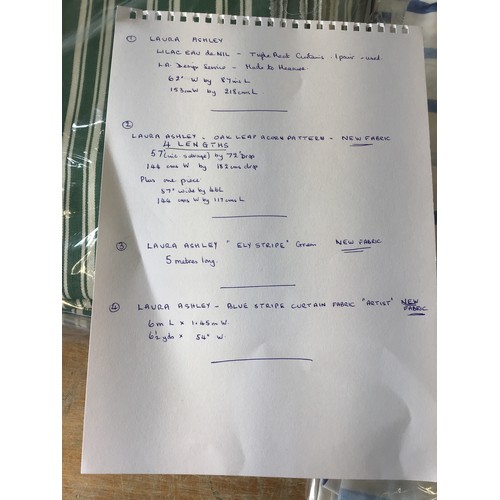 ① LAURA ASHLEY
LILAC EAU de NIL - Triple Pleat Curtains. 1 pair - used.
L.A. Design Service - Made to Measure
62" W by 87 ins L
153 cm W by 218 cms L
②
LAURA ASHLEY - OAK LEAF ACORN PATTERN - NEW FABRIC
4 LENGTHS
57" (inc selvage) by 72" Drop
144 cms W by 182 cms drop
Plus one piece
57" wide by 46 L
144 cms W by 117 cms L
③ LAURA ASHLEY "ELY STRIPE" Green NEW FABRIC
5 metres long.
④ LAURA ASHLEY - BLUE STRIPE CURTAIN FABRIC "ARTIST" NEW FABRIC
6 m L x 1.45 m W.
6½ yds x 54" W.